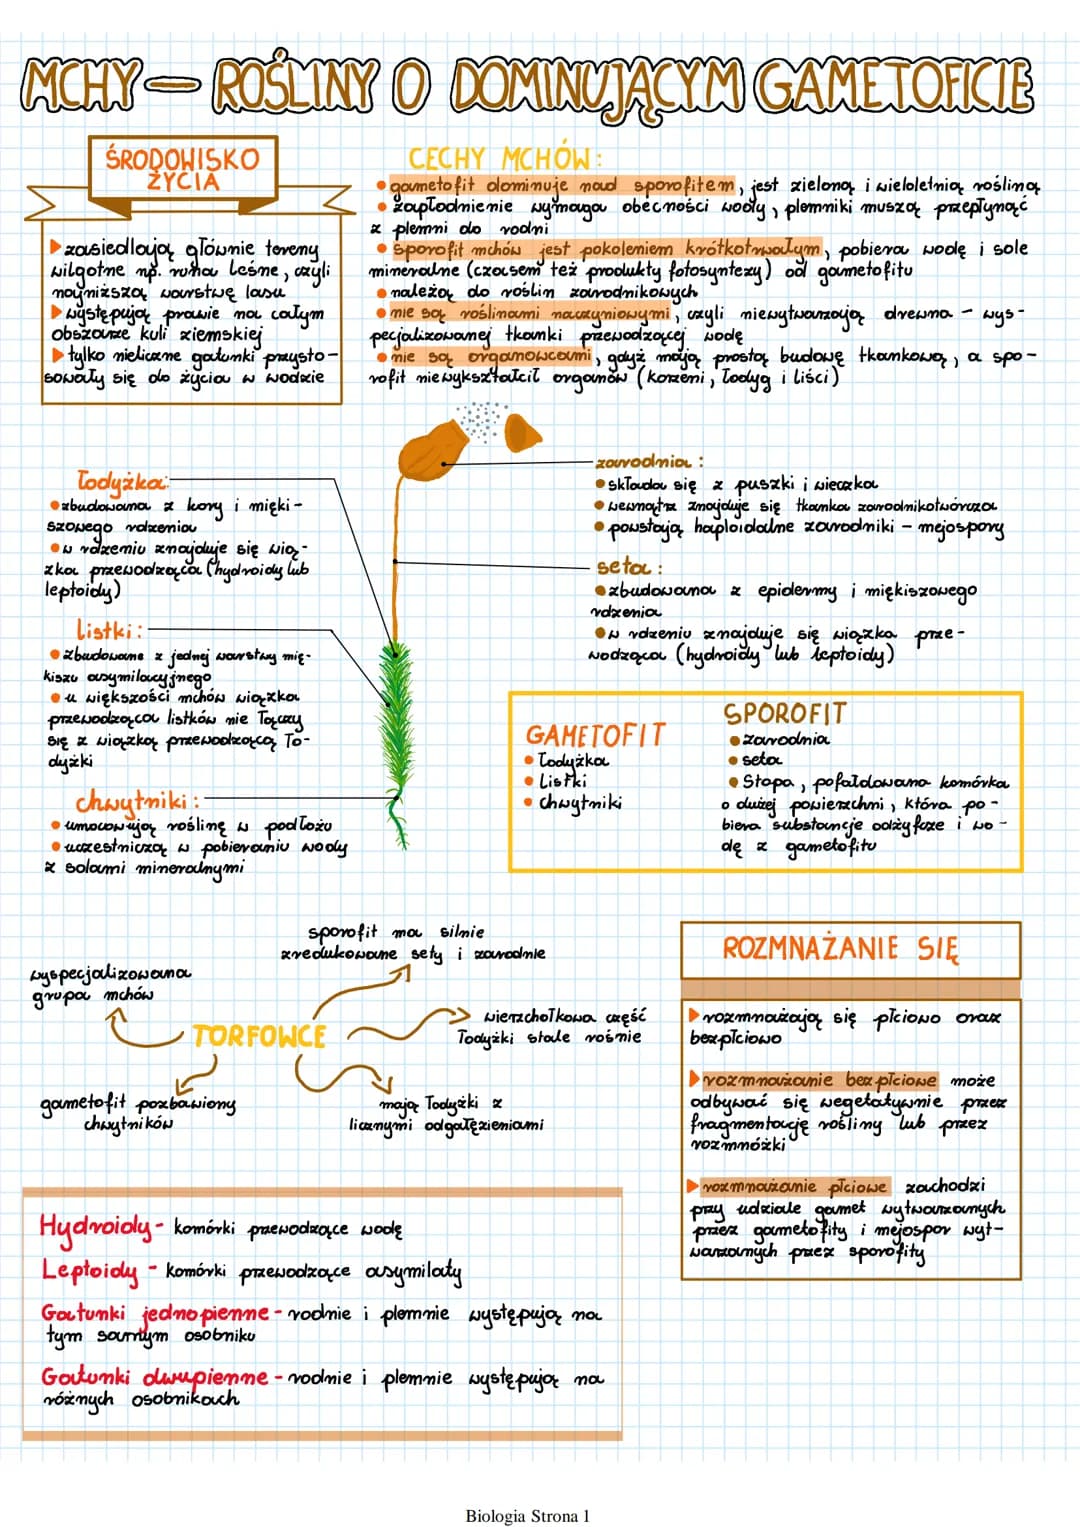 MCHY – ROŚLINY O DOMINUJĄCYM GAMETOFICIE
ŚRODOWISKO
ŻYCIA
zasiedlają głównie tereny
wilgotne np. runa leśne, czyli
najniższą warstwę lasu
występują prawie na całym
obszarze kuli ziemskiej
tylko nieliczne gatunki przysto-
sowały się do życia w wodzie
CECHY MCHÓW:
gametofit dominuje nad sporofitem, jest zieloną i wieloletnią rośliną
zapłodnienie wymaga obecności wody, plemniki muszą przepłynąć
z plemni do rodni
sporofit mchów jest pokoleniem krótkotrwałym, pobiera wodę i sole
mineralne (czasem też produkty fotosyntezy) od gametofitu
należą do roślin zarodnikowych
nie są roślinami naczyniowymi, czyli niewytwarzają drewna – wys-
pecjalizowanej tkanki przewodzącej wodę
nie są organowcami, gdyż mają prostą budowę tkankową, a spo-
rofit niewykształcił organów (korzeni, łodyg i liści)
łodyżka:
zbudowana z kory i mięki-
szowego rdzenia
w rdzeniu znajduje się wią-
zka przewodząca (hydroidy lub
leptoidy)
listki:
zbudowane z jednej warstwy mię-
kiszu asymilacyjnego
u większości mchów wiązka
przewodząca listków nie łączy
się z wiązką przewodzącą ło-
dyżki
chwytniki:
umocowują roślinę w podłożu
uczestniczą w pobieraniu wody
z solami mineralnymi
zarodnia:
składa się z puszki i wieczka
wewnątrz znajduje się tkanka zarodnikotwórcza
powstają haploidalne zarodniki – mejospory
seta:
zbudowana z epidermy i miękiszowego
rdzenia
w rdzeniu znajduje się wiązka prze-
wodząca (hydroidy lub leptoidy)
GAMETOFIT
łodyżka
Listki
chwytniki
SPOROFIT
zarodnia
seta
Stopa, pofałdowana komórka
o dużej powierzchni, która po-
biera substancje odżyfcze i wo-
dę z gametofitu
sporofit ma silnie
zredukowane sety i zarodnie
wyspecjalizowana
grupa mchów
TORFOWCE
wierzchołkowa część
łodyżki stale rośnie
gametofit pozbawiony
chwytników
mają łodyżki z
licznymi odgałęzieniami
ROZMNAŻANIE SIĘ
rozmnażają się płciowo oraz
bezpłciowo
rozmnażanie bezpłciowe może
odbywać się wegetatywnie przez
fragmentację rośliny lub przez
rozmnóżki
rozmnażanie płciowe zachodzi
przy udziale gamet wytwarzanych
przez gametofity i mejospor wyt-
warzanych przez sporofity
Hydroidy – komórki przewodzące wodę
Leptoidy – komórki przewodzące asymilaty
Gatunki jednopienne – rodnie i plemnie występują na
tym samym osobniku
Gatunki dwupienne – rodnie i plemnie występują na
różnych osobnikach
Biologia Strona 1